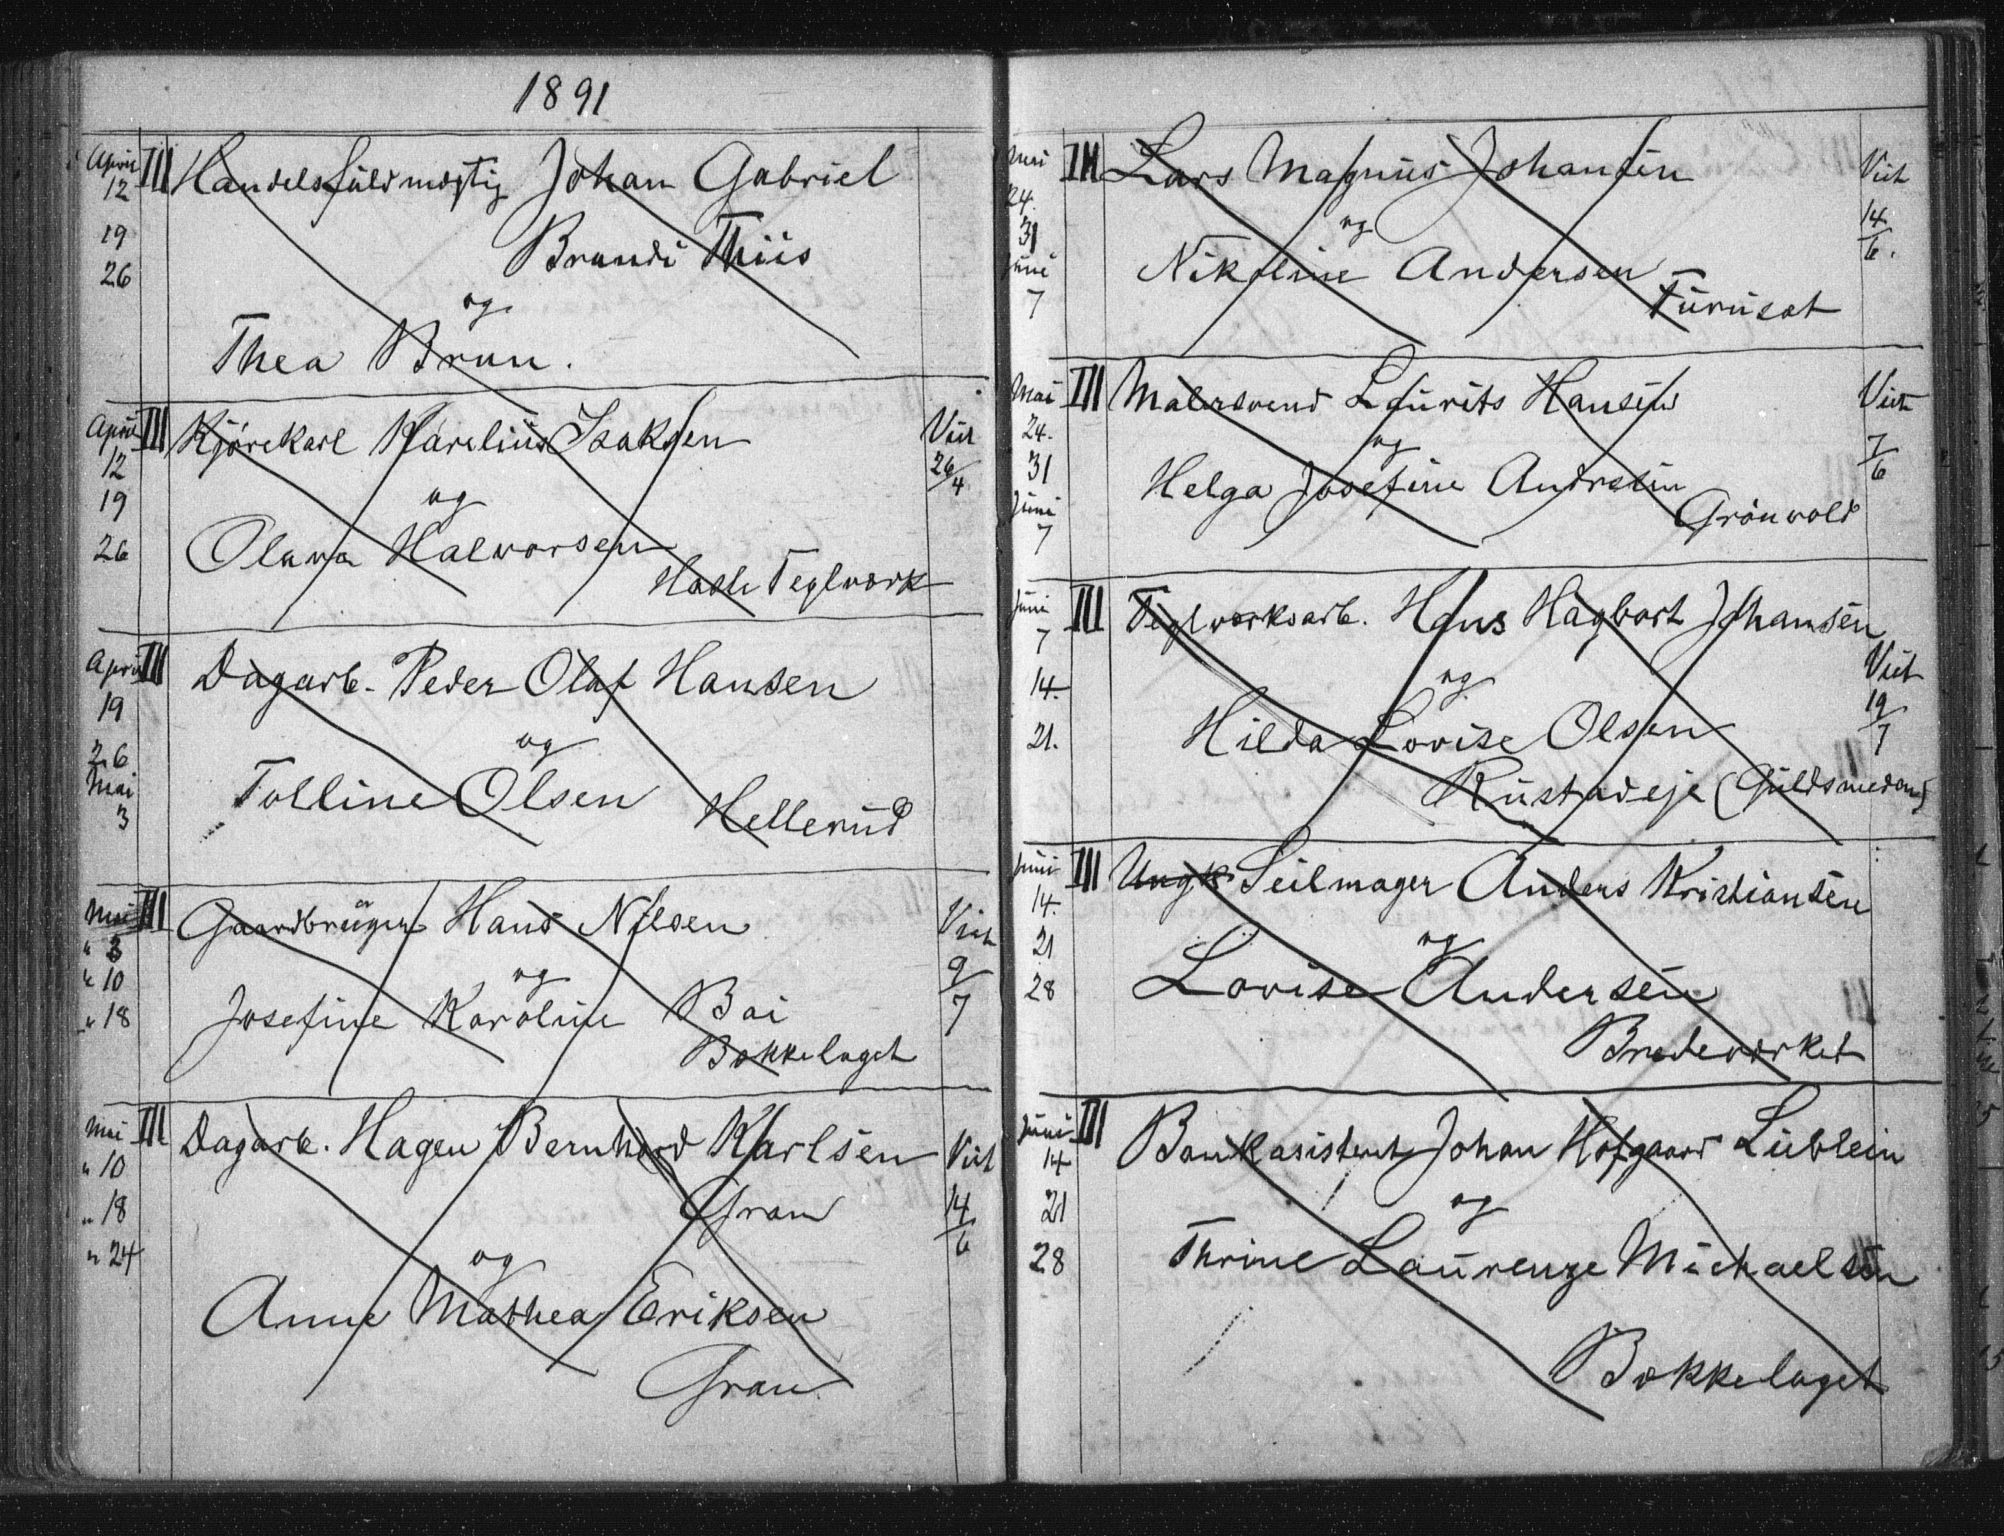 1891
April III Handelsfuldmægtig Johan Gabriel
12
19 Brandi Thiis
26
og
Thea Brun.
April III Kjørekarl Karelius Isaksen Viet
12 26/4
19 og
26 Olava Halvorsen
Hasle Teglværk
April III Dagarb. Peder Olaf Hansen
19
26 og
Mai Tolline Olsen
3 Hellerud
Mai III Gaardbruger Hans Nilsen Viet
" 3 9/7
" 10 og
" 18 Josefine Karoline Boi
Bækkelaget
Mai III Dagarb. Hagen Bernhard Karlsen Viet
" 10 14/6
" 18 Gran
" 24 og
Anne Mathea Eriksen
Gran
Mai III Lars Magnus Johansen Viet
24. 14/6.
31 og
Juni Nikoline Andersen
7 Furuset
Mai III Malersvend Laurits Hansen Viet
24. 7/6
31 og
Juni Helga Josefine Andresen
7 Grönvold
Juni III Teglværksarb. Hans Hagbart Johansen
7 Viet
14. og 19/7
21. Hilda Lovise Olsen
Rustadeje (Guldsmeden)
Juni III Ungk. Seilmager Anders Kristiansen
14.
21 og
28 Lovise Andersen
Brodeværket
Juni III Bankasistent Johan Hofgaard Lieblein
14
21 og
28 Thrine Laurenze Michaelsen
Bækkelaget